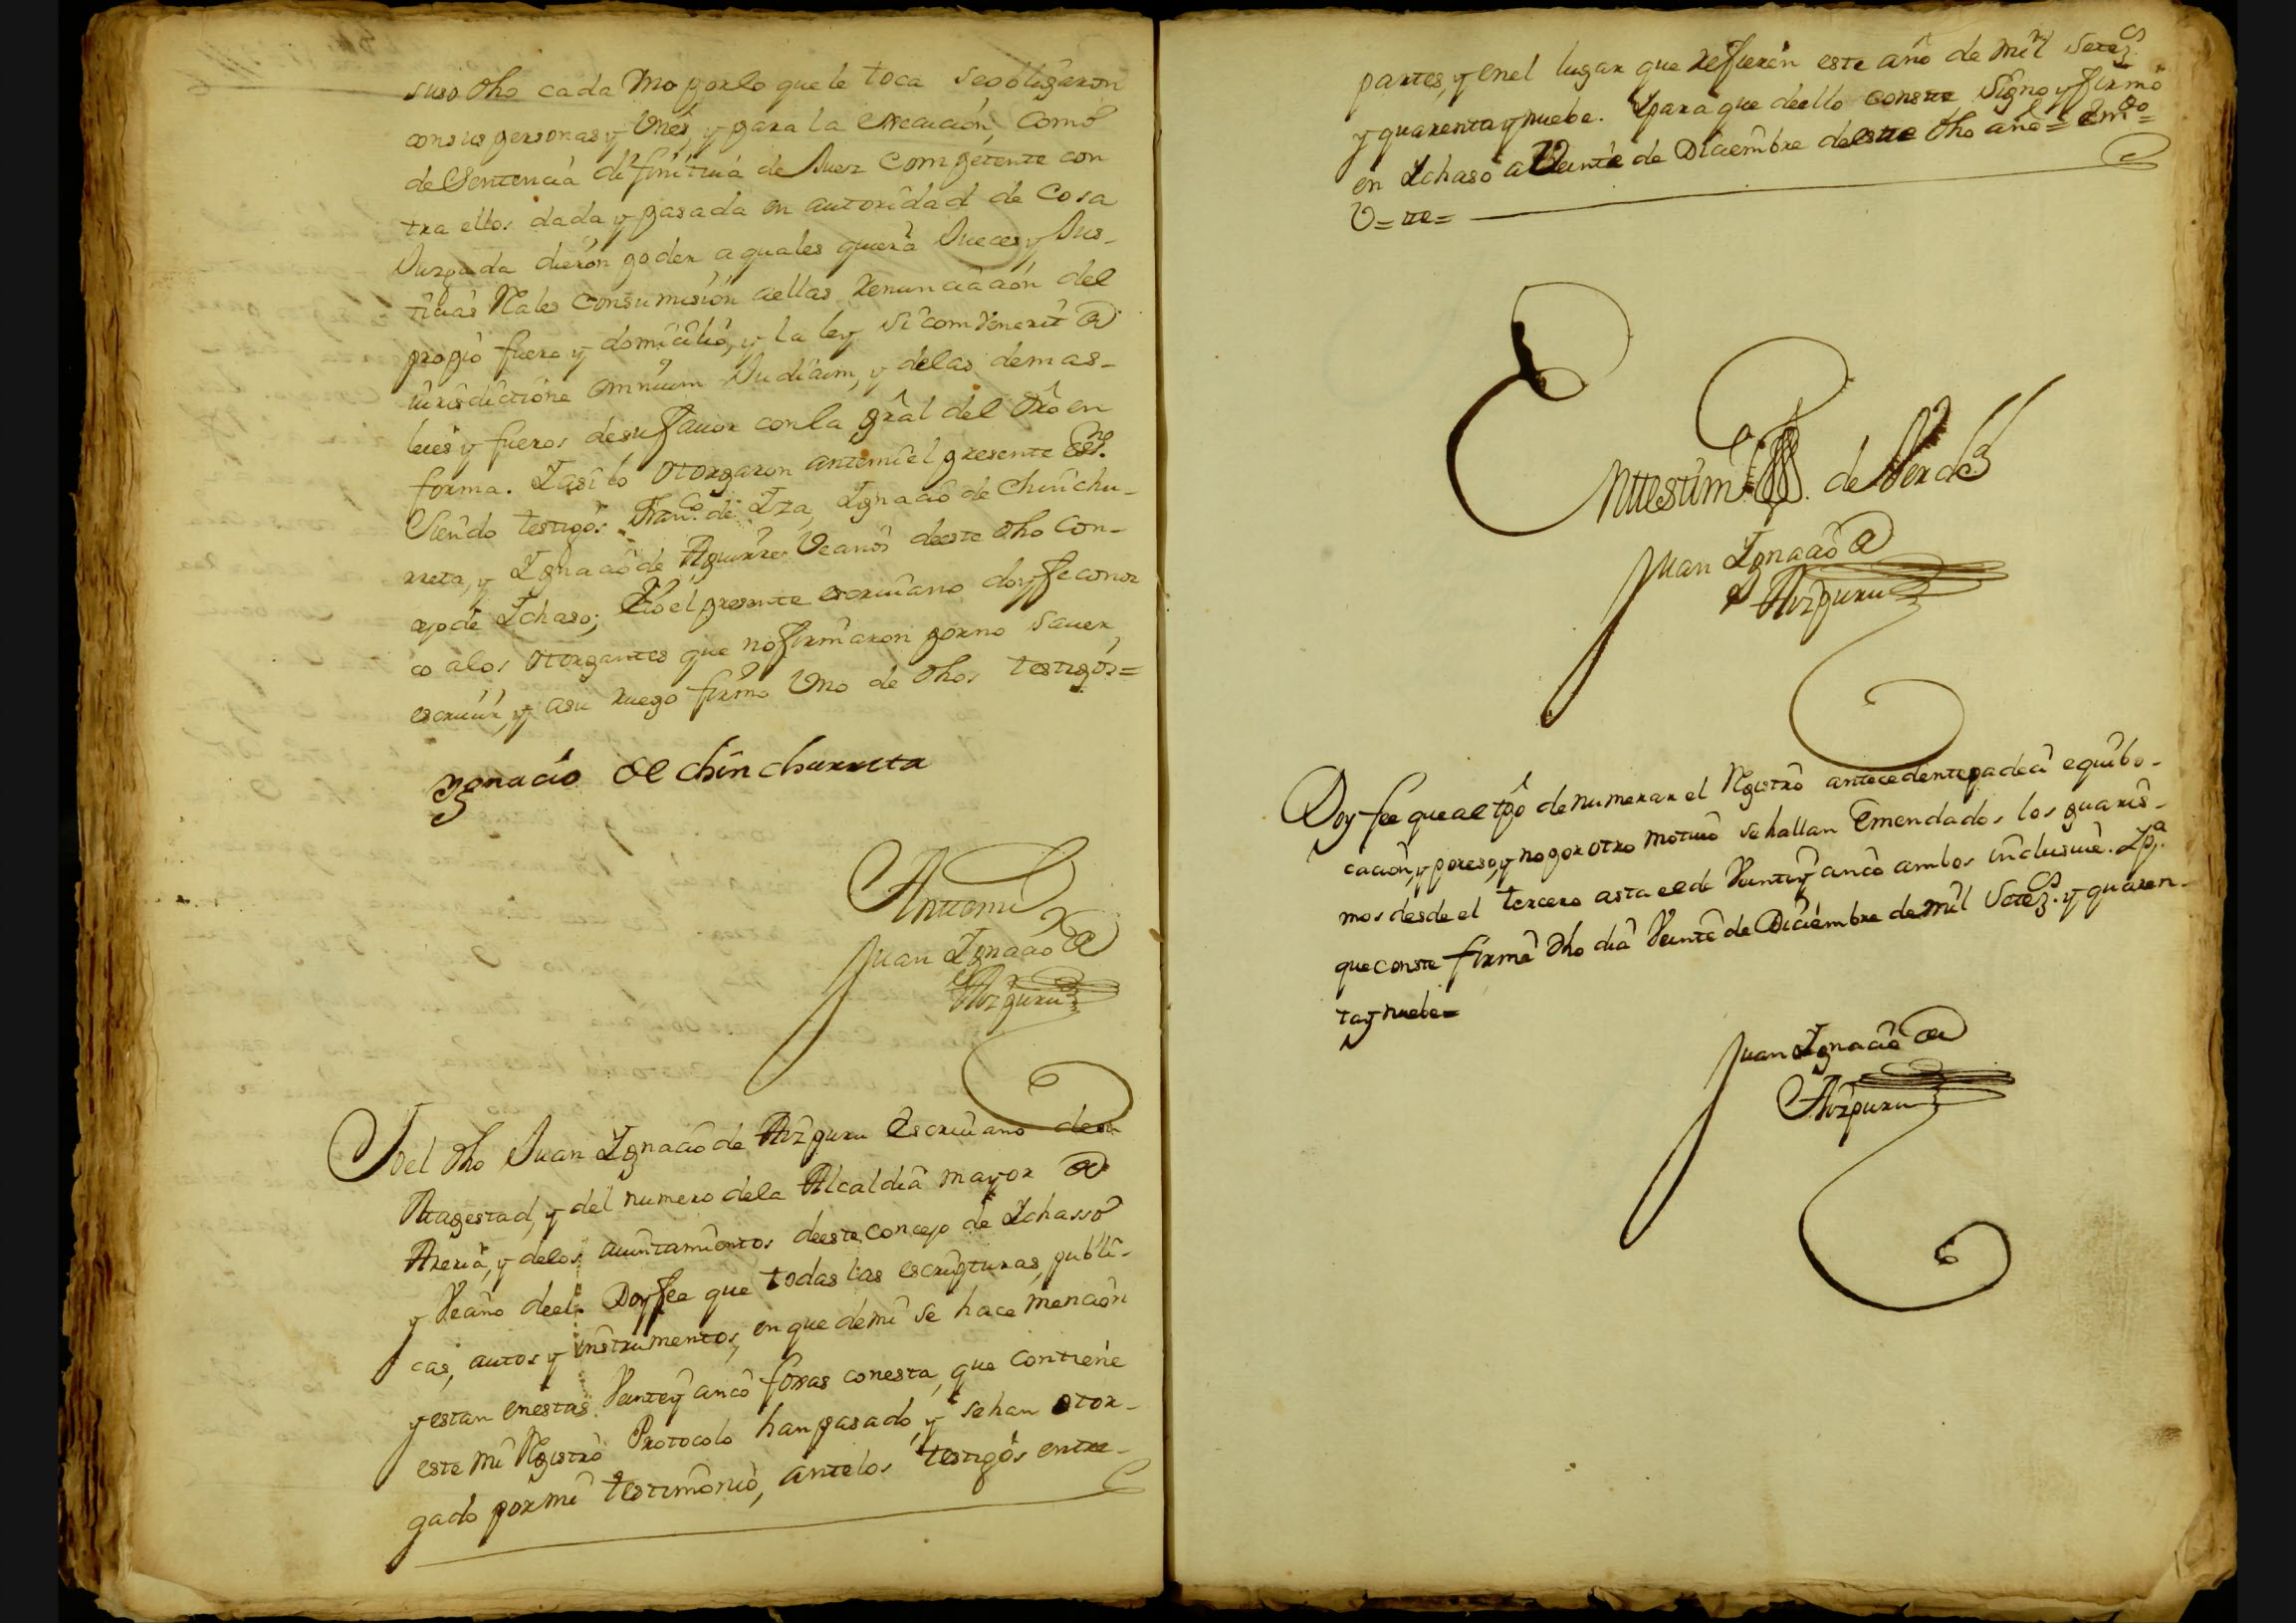 suso dho cada Vno por lo que le toca se obligaron
con sus personas y Vnes, y para la execucion, como
de Sentencia difinitiua de Juez Competente con
tra ellos dada y pasada en autoridad de Cosa
Juzgada dieron poder a quales quiera Jueces y Jus-
ticias Rales con sumision a ellas renunciacion del
propio fuero y domicilio, y la ley si combenerit de
iurisdictione omnium Judicum, y delas demas-
leies y fueros de su fauor con la gral del dro en
forma. Y asi lo otorgaron ante mi el presente essno.
Siendo testigos Franco. de Iza, Ignacio de Chinchu-
rreta, y Ignacio de Aguirre Vecinos de este dho Con-
cejo de Ichaso; E io el presente escriuano doy fe conoz
co alos otorgantes que no firmaron por no sauer,
escriuir, y a su ruego firmo Vno de dhos testigos=
ygnacio de chinchurreta
Ante mi
Juan Ignacio de
Aizpuru
Io el dho Juan Ignacio de Aizpuru Escriuano de su
Magestad, y del numero dela Alcaldia mayor de
Areria, y delos aiuntamientos de este concejo de Ichasso
y Vecino de el. Doy fee que todas las escripturas, publi-
cas, autos y instrumentos, en que de mi se hace mencion
y estan en estas Veinte y cinco foxas con esta, que contiene
este mi Registro Protocolo han pasado, y se han otor-
gado por mi testimonio, ante los testigos entre-
partes, y en el lugar que refieren este año de mil setezs.
y quarenta y nuebe. Y para que de ello conste signo y firmo
en Ichaso a Veinte de Diciembre de este dho año= Emdo=
V= te=
En testimo. de Verdad
Juan Ignacio de
Aizpuru
Doy fee que al tpo de numerar el Registro antecedente padeci equibo-
cacion, y por eso, y no por otro motiuo se hallan Emendados los guaris-
mos desde el tercero asta el de Veinte y cinco ambos inclusiue. Y pa.
que conste firme dho dia Veinte de Diciembre de mil Setezs. y quaren-
ta y nuebe=
Juan Ignacio de
Aizpuru